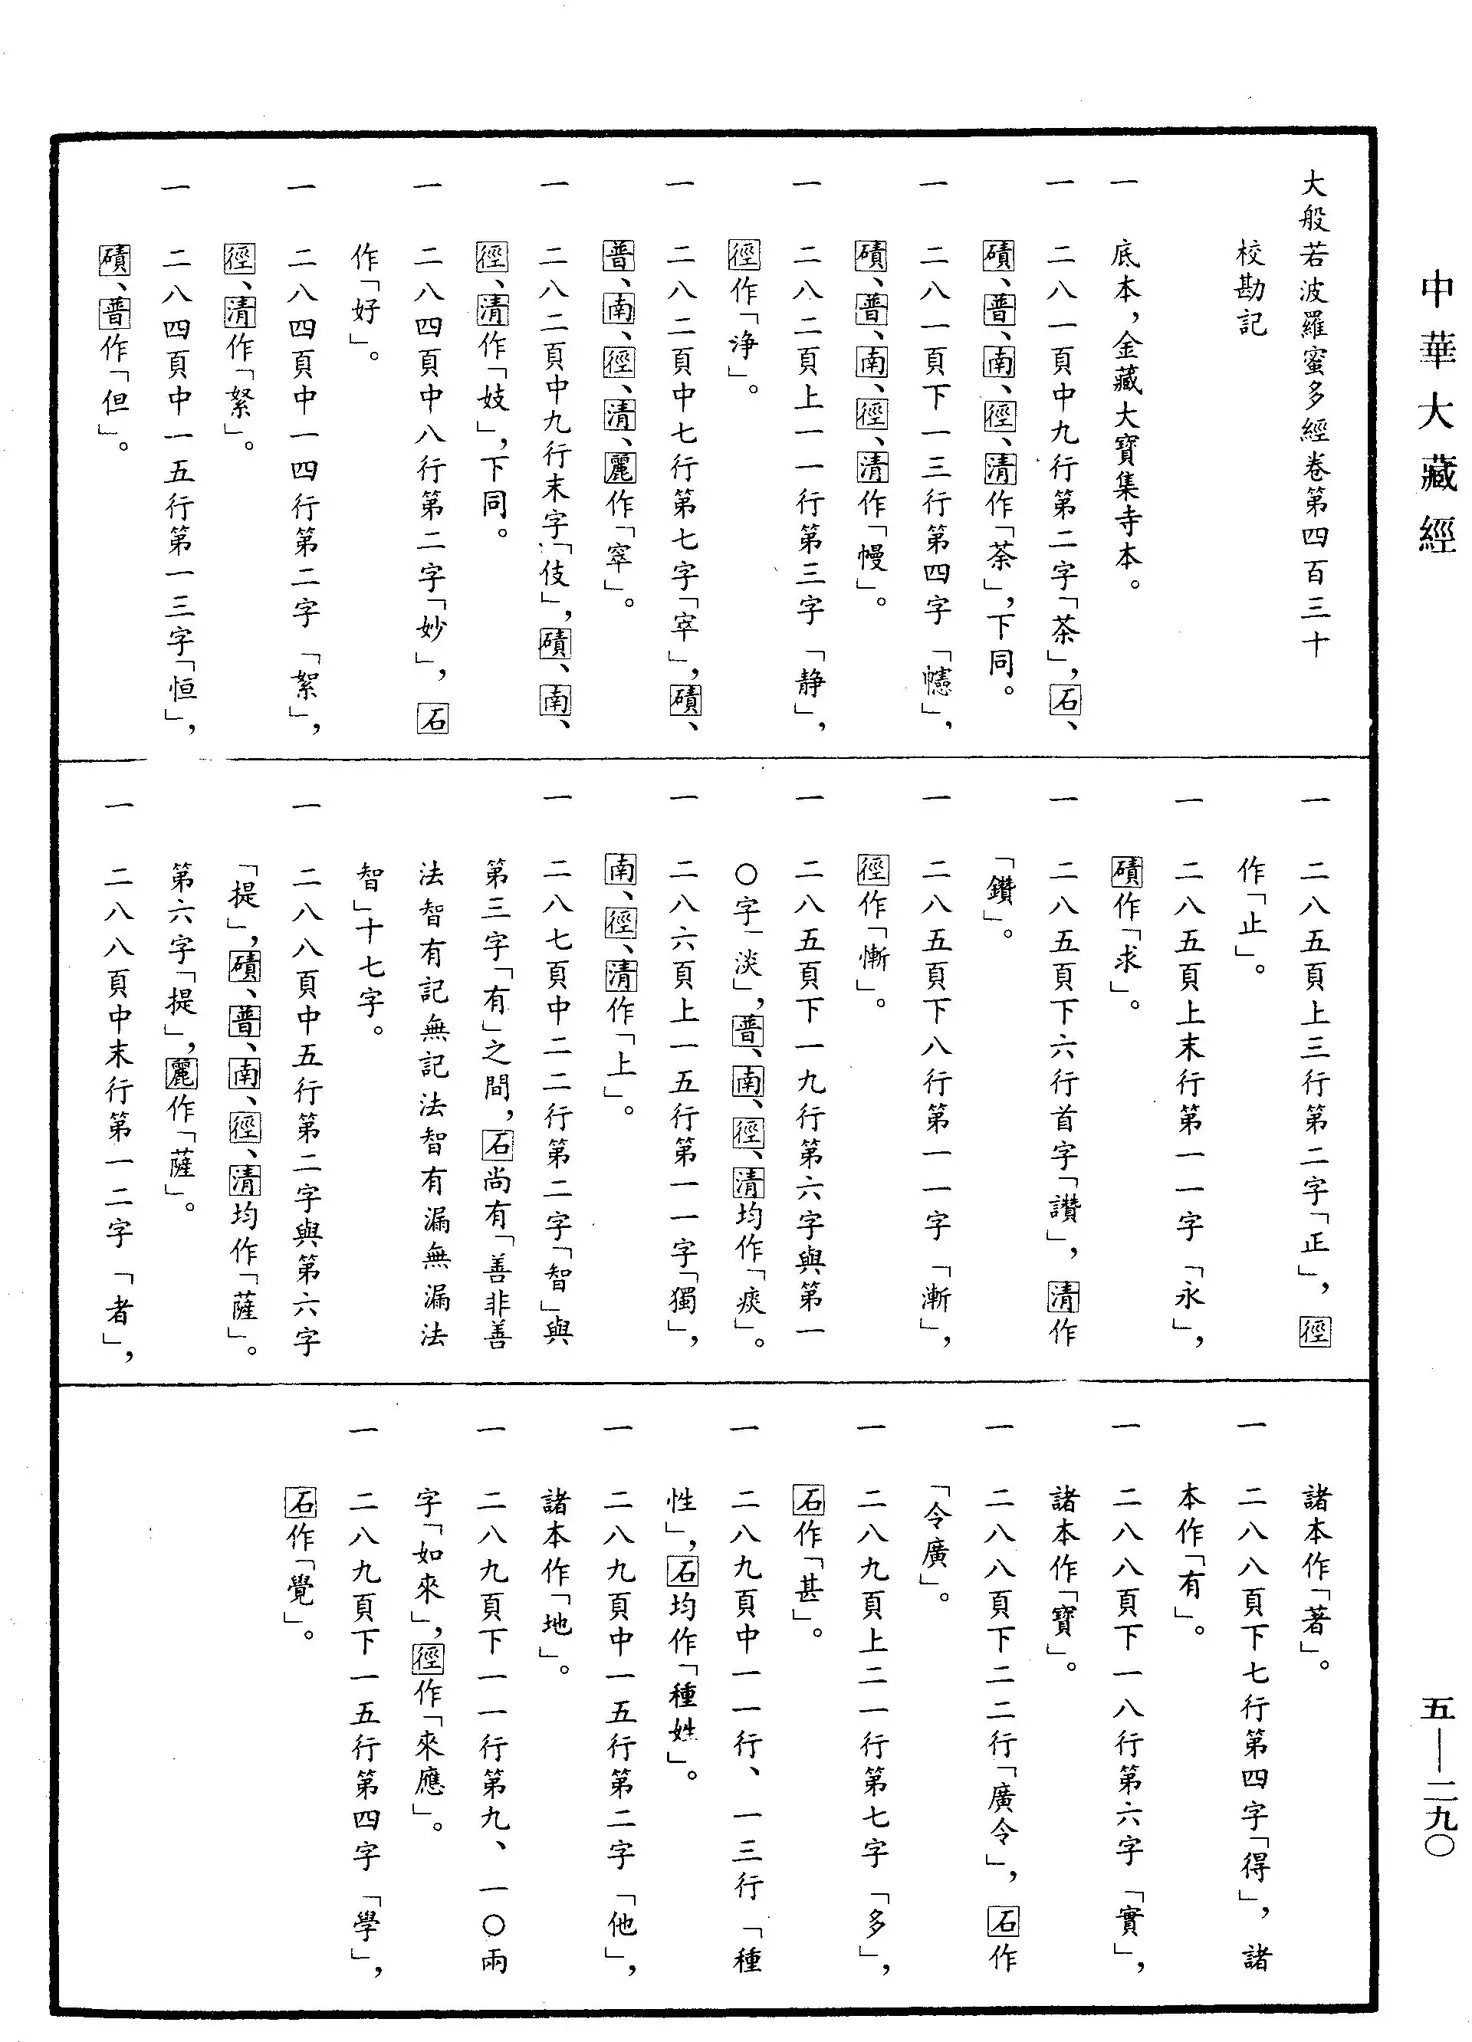 中華大藏經
五—二九〇
大般若波羅蜜多經卷第四百三十
校勘記
一 底本,金藏大寶集寺本。
一 二八一頁中九行第二字「茶」,石、
磧、普、南、徑、清作「荼」,下同。
一 二八一頁下一三行第四字「幰」,
磧、普、南、徑、清作「幔」。
一 二八二頁上一一行第三字「静」,
徑作「浄」。
一 二八二頁中七行第七字「宰」,磧、
普、南、徑、清、麗作「窣」。
一 二八二頁中九行末字「伎」,磧、南、
徑、清作「妓」,下同。
一 二八四頁中八行第二字「妙」,石
作「好」。
一 二八四頁中一四行第二字「絮」,
徑、清作「䋈」。
一 二八四頁中一五行第一三字「恒」,
磧、普作「但」。
一 二八五頁上三行第二字「正」,徑
作「止」。
一 二八五頁上末行第一一字「永」,
磧作「求」。
一 二八五頁下六行首字「讚」,清作
「鑽」。
一 二八五頁下八行第一一字「漸」,
徑作「慚」。
一 二八五頁下一九行第六字與第一
〇字「淡」,普、南、徑、清均作「痰」。
一 二八六頁上一五行第一一字「獨」,
南、徑、清作「上」。
一 二八七頁中二二行第二字「智」與
第三字「有」之間,石尚有「善非善
法智有記無記法智有漏無漏法
智」十七字。
一 二八八頁中五行第二字與第六字
「提」,磧、普、南、徑、清均作「薩」。
第六字「提」,麗作「薩」。
一 二八八頁中末行第一二字「者」,
諸本作「著」。
一 二八八頁下七行第四字「得」,諸
本作「有」。
一 二八八頁下一八行第六字「實」,
諸本作「寶」。
一 二八八頁下二二行「廣令」,石作
「令廣」。
一 二八九頁上二一行第七字「多」,
石作「甚」。
一 二八九頁中一一行、一三行「種
性」,石均作「種姓」。
一 二八九頁中一五行第二字「他」,
諸本作「地」。
一 二八九頁下一一行第九、一〇兩
字「如來」,徑作「來應」。
一 二八九頁下一五行第四字「學」,
石作「覺」。